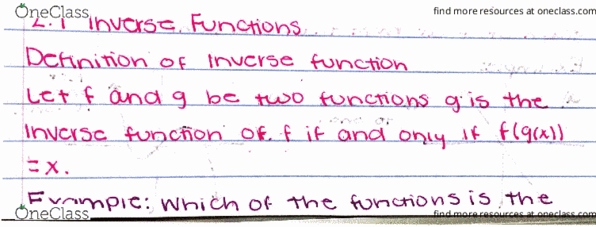 OneClass find more resources at oneclass.com
2.1 Inverse Functions
Definition of Inverse function
Let f and g be two functions g is the
Inverse function of f if and only if f(g(x))
= x.
Example: Which of the functions is the
OneClass find more resources at oneclass.com